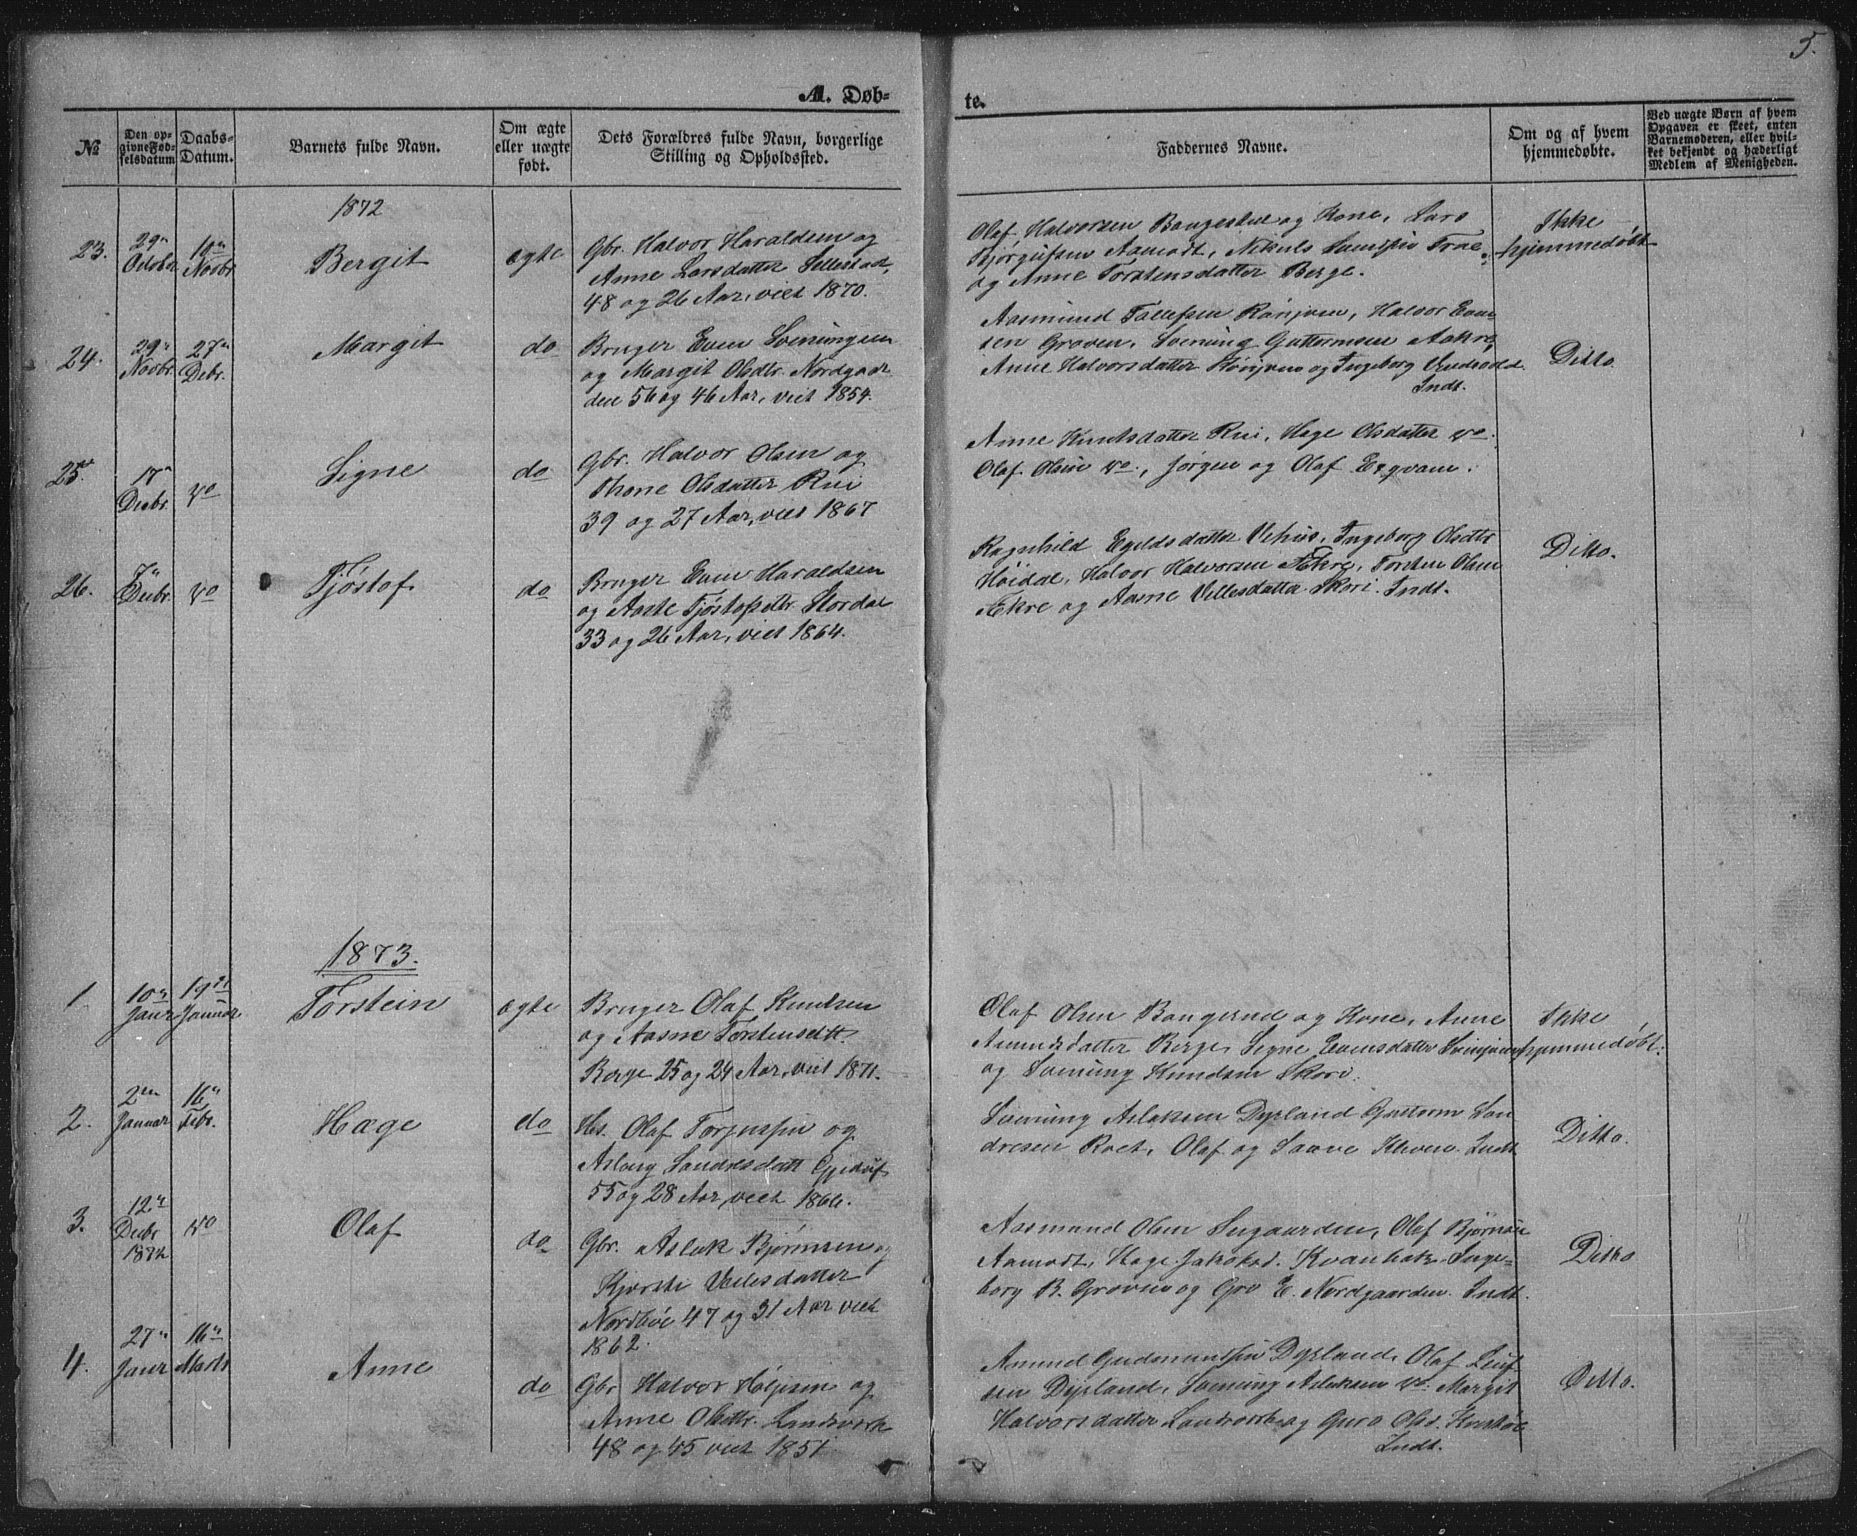 5.
A. Døb-
te.
No
Den op-
givne Fød-
selsdatum
Daabs-
Datum.
Barnets fulde Navn.
Om ægte
eller uægte
født.
Dets Forældres fulde Navn, borgerlige
Stilling og Opholdssted.
Faddernes Navne.
Om og af hvem
hjemmedøbte.
Ved uægte Børn af hvem
Opgaven er skeet, enten
Barnemoderen, eller hvil-
ket bekjendt og hæderligt
Medlem af Menigheden.
1872
23.
29de
Octobr
10de
Novbr
Bergit
ægte
Gbr. Halvor Haraldsen og
Anne Larsdatter Sillestad,
48 og 26 Aar, viet 1870.
Olaf Halvorsen og Kone, Lars
Aamodt, Nikuls
og Anne Torstensdatter Berge.
Ikke
hjemmedøbt
24.
29"
Novbr.
27"
Debr.
Margit
do
Bruger Even Sveiningsen
og Margit Olsdtr. Nordgaar
den 56 og 46 Aar, viet 1854.
Aasmund Tallefsen Rønjom, Halvor Even
sen Groven, Sveinung Guttormsen Aakre,
Anne Halvorsdatter og Ingeborg
Indt.
Ditto
25.
17"
Decbr.
do
Signe
do
Gbr. Halvor Olsen og
Thone Olsdatter Rui
39 og 27 Aar, viet 1867
Anne Knutsdatter Rui, Hæge Olsdatter do.
Olaf Olsen do., Jørgen og Olaf
26.
7"
Decbr.
do
Tjøstof
do
Bruger Even Haraldsen
og Aaste Tjøstofsdtr. Stordal
33 og 26 Aar, viet 1864.
Ragnhild Egildsdatter Vehus, Ingeborg Olsdtr
Høidal, Halvor Halvorsen Ækre, Torsten Olsen
Ækre og Aasne Villesdatter Skori. Indt.
Ditto.
1873.
1.
10de
Janr
19de
Januar
Torstein
ægte
Bruger Olaf Knutsen
og Aasne Torstensdtt.
Berge 25 og 24 Aar, viet 1871.
Olaf Olsen og Kone, Anne
Aamundsdatter Berge, Signe Evensdatter
og Sveinung Knudsen Skori.
Ikke
hjemmedøbt.
2.
2den
Januar
16"
Febr.
Hæge
do
Hs. Olaf Torjussen og
Aslaug Sandresdatt
55 og 28 Aar, viet 1866.
Sveinung Aslaksen Dyrland, Guttorm San
dresen Roet, Olaf og Saave Kleven. Indt
Ditto.
3.
12"
Decbr
1872
do
Olaf
do
Gbr. Aslak Bjørnsen og
Kjersti Villesdatter
Nordbøe 47 og 31 Aar viet
1862.
Aasmund Olsen Sugaarden, Olaf Bjørnsen
Aamodt, Hæge Jakobsd. Inge-
borg B. Groven og Gro E. Nordgaarden. Indt.
Ditto
4.
27"
Janr
16"
Marts
Anne
do
Gbr Halvor og
Anne Olsdtr. Landsverk
48 og 45 viet 1851
Amund Gudmundsen Dyrland, Olaf
sen Dyrland, Sveinung Aslaksen do. Margit
Halvorsdatter Landsverk og Guro Olsd.
Indt.
Ditto.